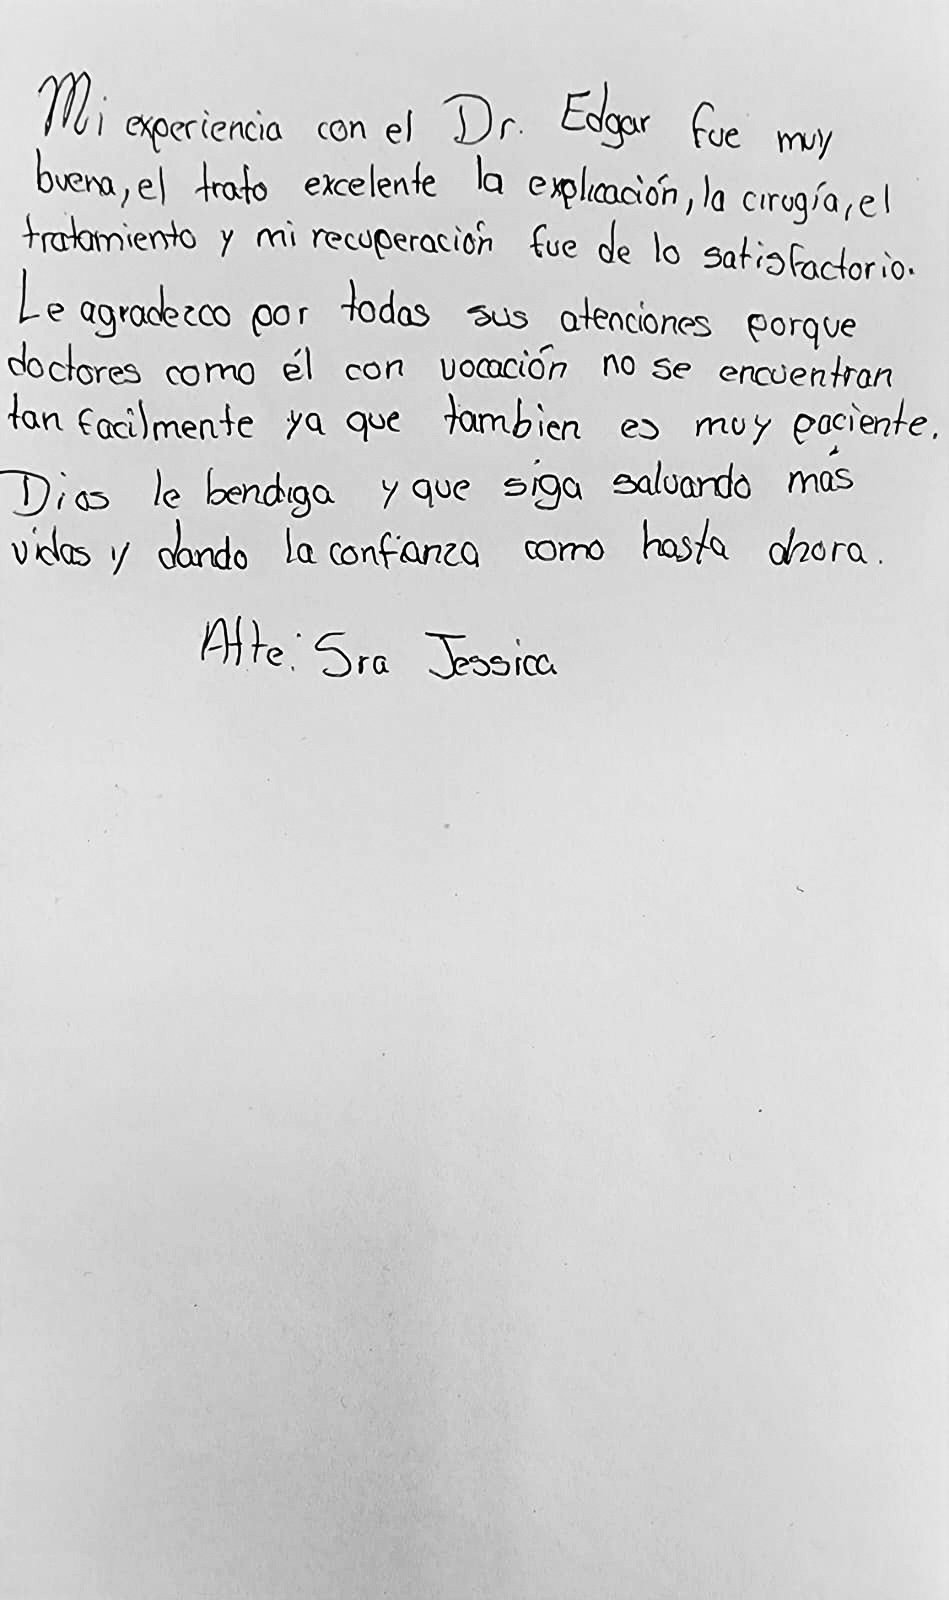 Mi experiencia con el Dr. Edgar fue muy
buena, el trato excelente la explicación, la cirugía, el
tratamiento y mi recuperación fue de lo satisfactorio.
Le agradezco por todas sus atenciones porque
doctores como él con vocación no se encuentran
tan facilmente ya que tambien es muy paciente.
Dios le bendiga y que siga salvando más
vidas y dando la confianza como hasta ahora.
Atte: Sra Jessica